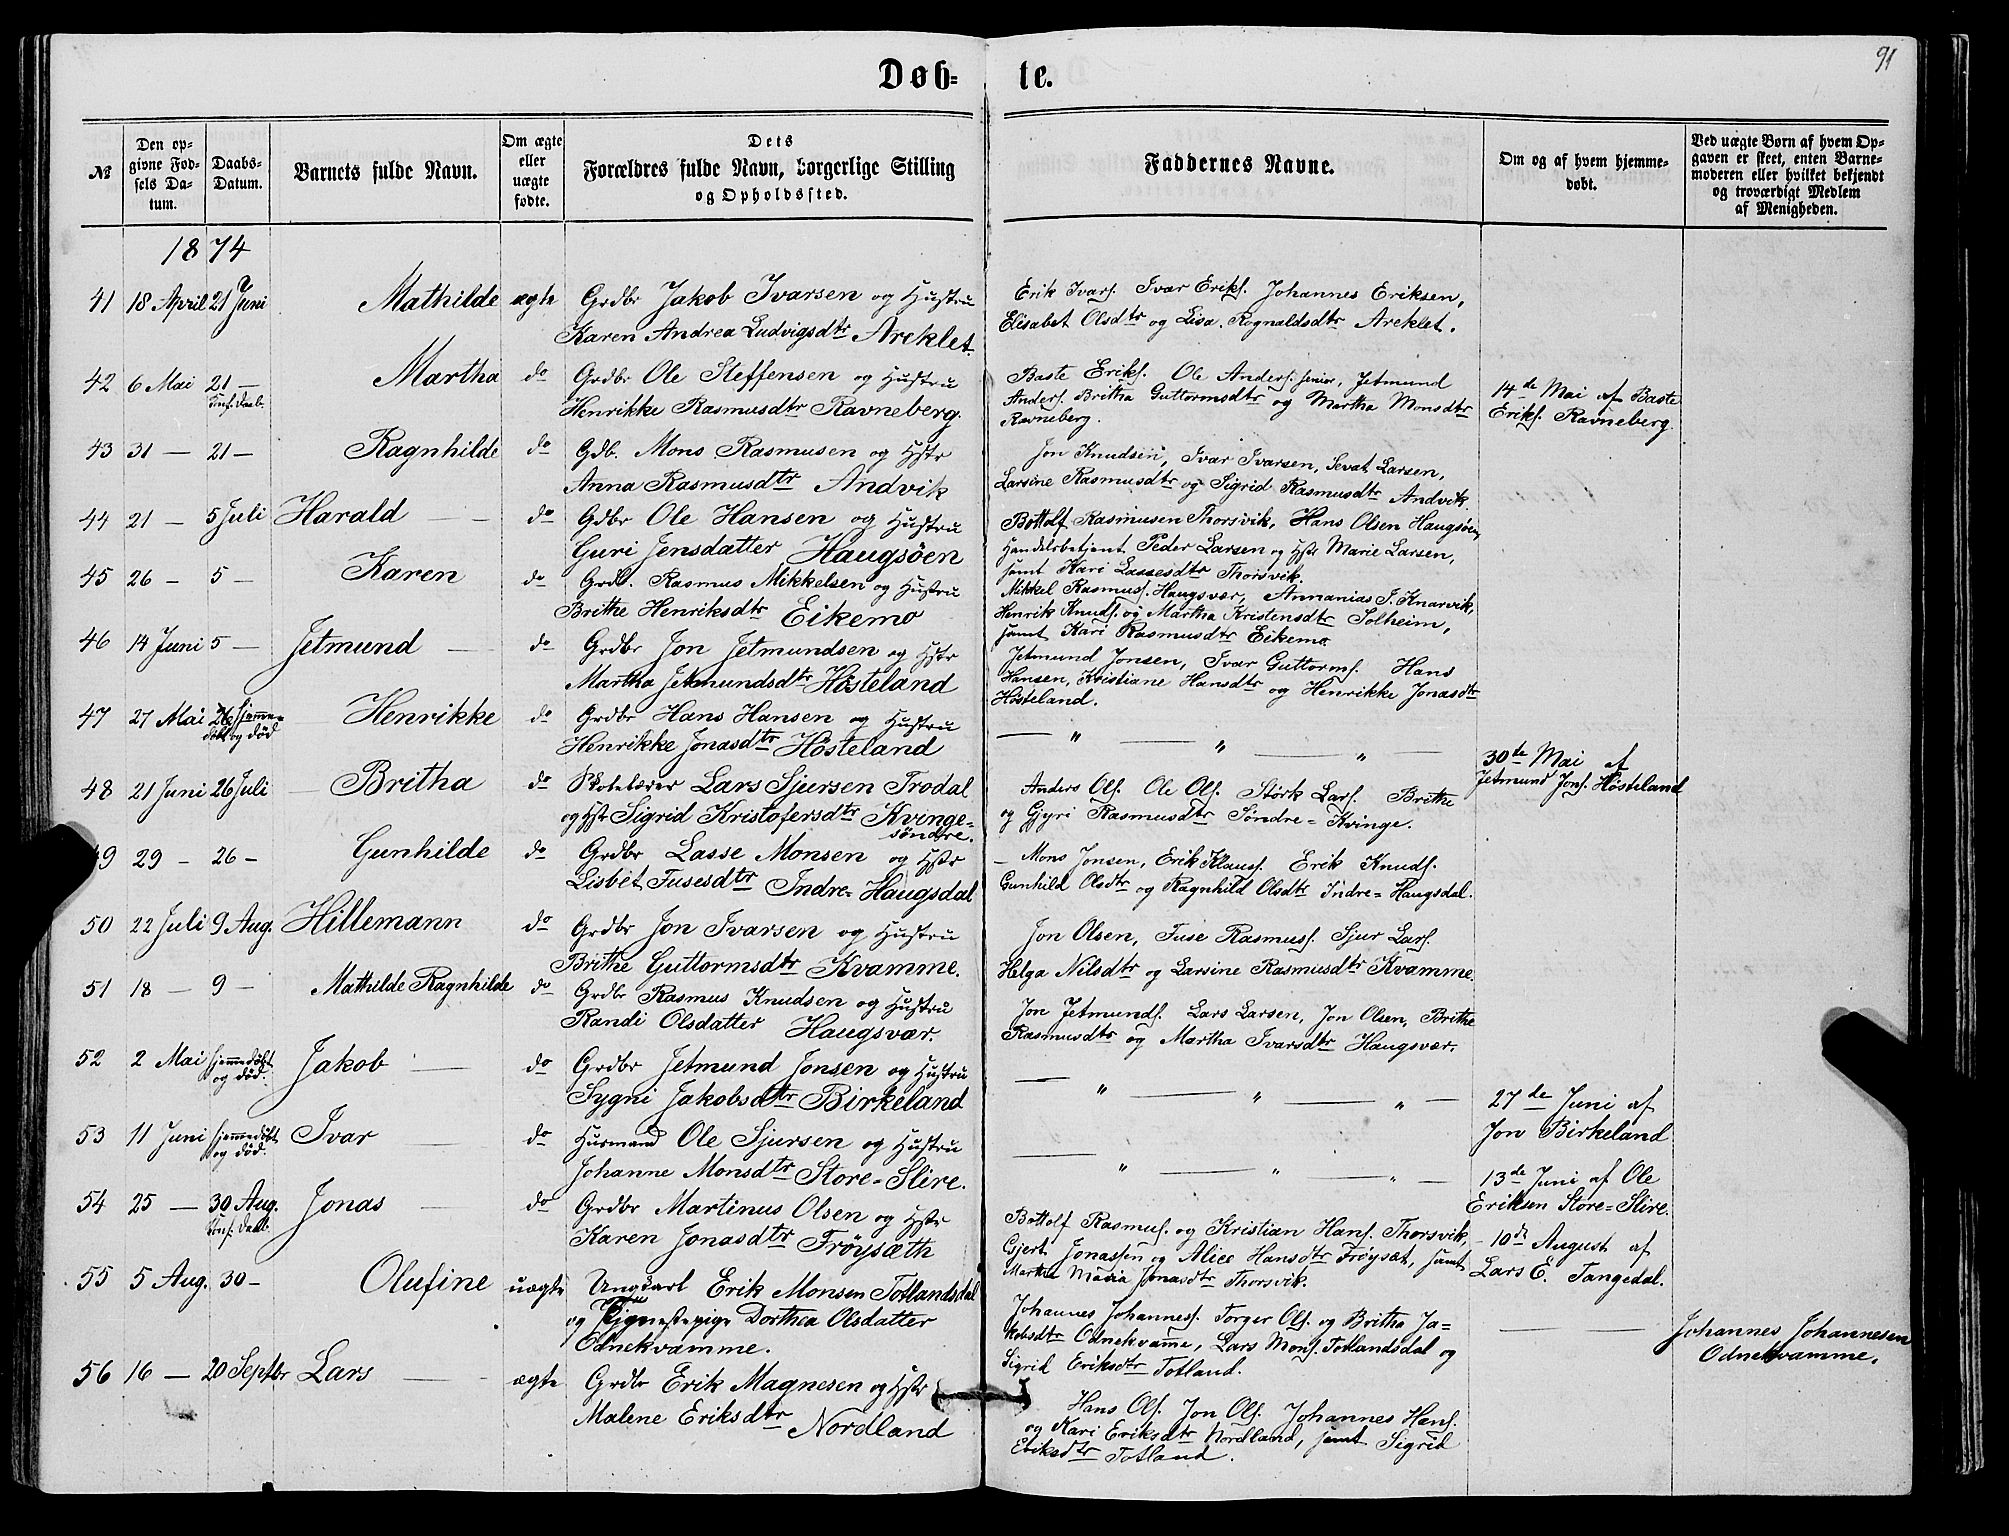 91
Døb-
te.
№
Den op-
givne Fød-
sels Da-
tum.
Daabs-
Datum.
Barnets fulde Navn.
Om ægte
eller
uægte
fødte.
Dets
Forældres fulde Navn, borgerlige Stilling
og Opholdssted.
Faddernes Navne.
Om og af hvem hjemme-
døbt.
Ved uægte Børn af hvem Op-
gaven er skeet, enten Barne-
moderen eller hvilket bekjendt
og troværdigt Medlem
af Menigheden.
1874
41 18 April 21 Juni Mathilde ægte Grdbr Jakob Ivarsen og Hustru
Karen Andrea Ludvigsdtr Areklet.
Erik Ivars. Ivar Eriks. Johannes Eriksen,
Elisabet Olsdtr og Lisa Rognaldsdtr Areklet.
42 6 Mai 21 — Martha do Grdbr Ole Steffensen og Hustru
Henrikke Rasmusdtr Ravneberg.
Baste Eriks. Ole Anders. senior, Jetmund
Anders. Britha Guttormsdtr og Martha Monsdtr
Ravneberg.
14de Mai af Baste
Eriks. Ravneberg.
43 31 — 21 — Ragnhilde do Gdb. Mons Rasmusen og Hstr
Anna Rasmusdtr Andvik
Jon Knudsen, Ivar Ivarsen, Sevat Larsen,
Larsine Rasmusdtr og Sigrid Rasmusdtr Andvik.
44 21 — 5 Juli Harald — do Gdbr Ole Hansen og Hustru
Guri Jensdatter Haugsöen
Bottolf Rasmusen Thorsvik, Hans Olsen Haugsöen,
Handelsbetjent Peder Larsen og Hstr Marie Larsen,
samt Kari Lassesdtr Thorsvik.
45 26 — 5 — Karen do Grdb. Rasmus Mikkelsen og Hustru
Brithe Henriksdtr Eikemo
Mikkel Rasmus. Haugsvær, Annanias J. Knarvik,
Henrik Knuds. og Martha Kristensdtr Solheim,
samt Kari Rasmusdtr Eikemo.
46 14 Juni 5 — Jetmund — do Grdbr Jon Jetmundsen og Hstr
Martha Jetmundsdtr Hösteland
Jetmund Jonsen, Ivar Guttorms. Hans
Hansen, Kristiane Hansdtr og Henrikke Jonasdtr
Hösteland.
47 27 Mai Hjemme-
døbt og død Henrikke do Grdbr Hans Hansen og Hustru
Henrikke Jonasdtr Hösteland
— " — " — " —
30te Mai af
Jetmund Jons. Hösteland
48 21 Juni 26 Juli — Britha do Skolelærer Lars Sjursen Trodal
og Hstr Sigrid Kristofersdtr Kvinge-
söndre.
Anders Ols. Ole Ols. Störk Lars. Brithe
og Gjyri Rasmusdtr Söndre-Kvinge.
49 29 — 26 — Gunhilde do Grdbr Lasse Monsen og Hstr
Lisbet Tusesdtr Indre-Haugsdal
— Mons Jonsen, Erik Klaus. Erik Knuds.
Gunhild Olsdtr og Ragnhild Olsdtr Indre-Haugsdal.
50 22 Juli 9 Aug. Hillemann do Grdbr Jon Ivarsen og Hustru
Brithe Guttormsdtr Kvamme.
Jon Olsen, Tuse Rasmus. Sjur Lars.
Helga Nilsdtr og Larsine Rasmusdtr Kvamme.
51 18 — 9 — Mathilde Ragnhilde do Grdbr Rasmus Knudsen og Hustru
Randi Olsdatter Haugsvær.
Jon Jetmunds. Lars Larsen, Jon Olsen, Brithe
Rasmusdtr og Martha Ivarsdtr Haugsvær.
52 2 Mai hjemmedøbt
og død. Jakob — do Grdbr Jetmund Jonsen og Hustru
Sygni Jakobsdtr Birkeland
— " — " — " —
27de Juni af
Jon Birkeland
53 11 Juni hjemmedøbt
og død. Ivar — do Husmand Ole Sjursen og Hustru
Johanne Monsdtr Store-Slire.
— " — " — " —
13de Juni af Ole
Eriksen Store-Slire.
54 25 — 30 Aug. Jonas — do Grdbr Martinus Olsen og Hstr
Karen Jonasdtr Fröysæth
Bottolf Rasmus. og Kristian Hans. Thorsvik,
Gjert Jonassen og Alice Hansdtr Fröysæt, samt
Martha Maria Jonasdtr Thorsvik.
— 10de August af
Lars E. Tangedal.
55 5 Aug. 30 — Olufine uægte Ungkarl Erik Monsen Totlandsdal
og Tjenestepige Dorthea Olsdatter
Odnekvamme.
Johannes Johannes. Torger Ols. og Britha Ja-
kobsdtr Odnekvamme, Lars Mons. Totlandsdal og
Sigrid Eriksdtr Totland.
Johannes Johannesen
Odnekvamme.
56 16 — 20 Septbr Lars — ægte Grdbr Erik Magnesen og Hstr
Malene Eriksdtr Nordland
Hans Ols. Jon Ols. Johannes Hans.
og Kari Eriksdtr Nordland, samt Sigrid
Eriksdtr Totland.